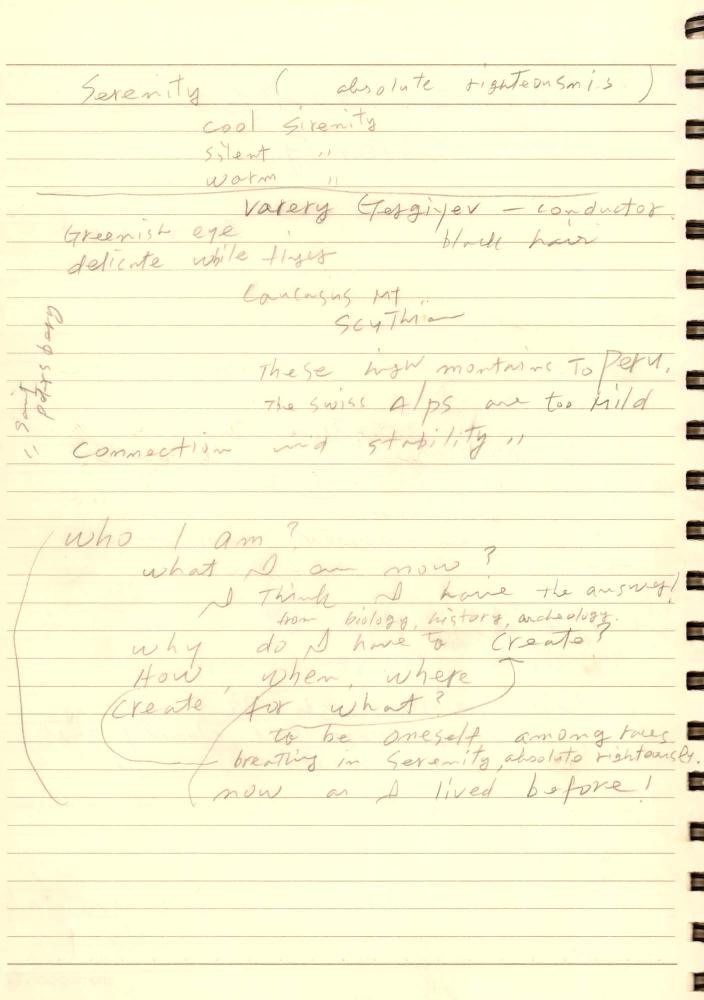 Serenity ( absolute righteousnis )
cool Sirenity
silent "
warm "
Varery Gergiyev – conductor.
Greenish eye black hair
delicate while
Caucasus Mt "
Scythian
These high montains To Peru.
The Swiss Alps are too Mild
Connection and stability "
who I am?
what I am now?
I Think I have the answer!
from biology, history, archeology.
why do I have to create?
How, when, where
create for what?
to be oneself among
breathing in Serenity, absolute righteously.
now as I lived before!